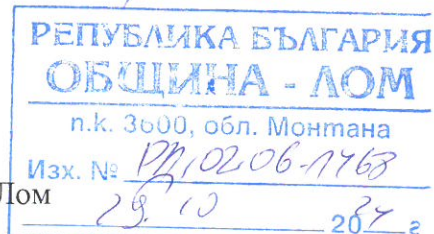 РЕПУБЛИКА БЪЛГАРИЯ
ОБЩИНА - ЛОМ
п.к. 3600, обл. Монтана
Изх. № РД-02-06-1768
Лом
29. 10 2024 г